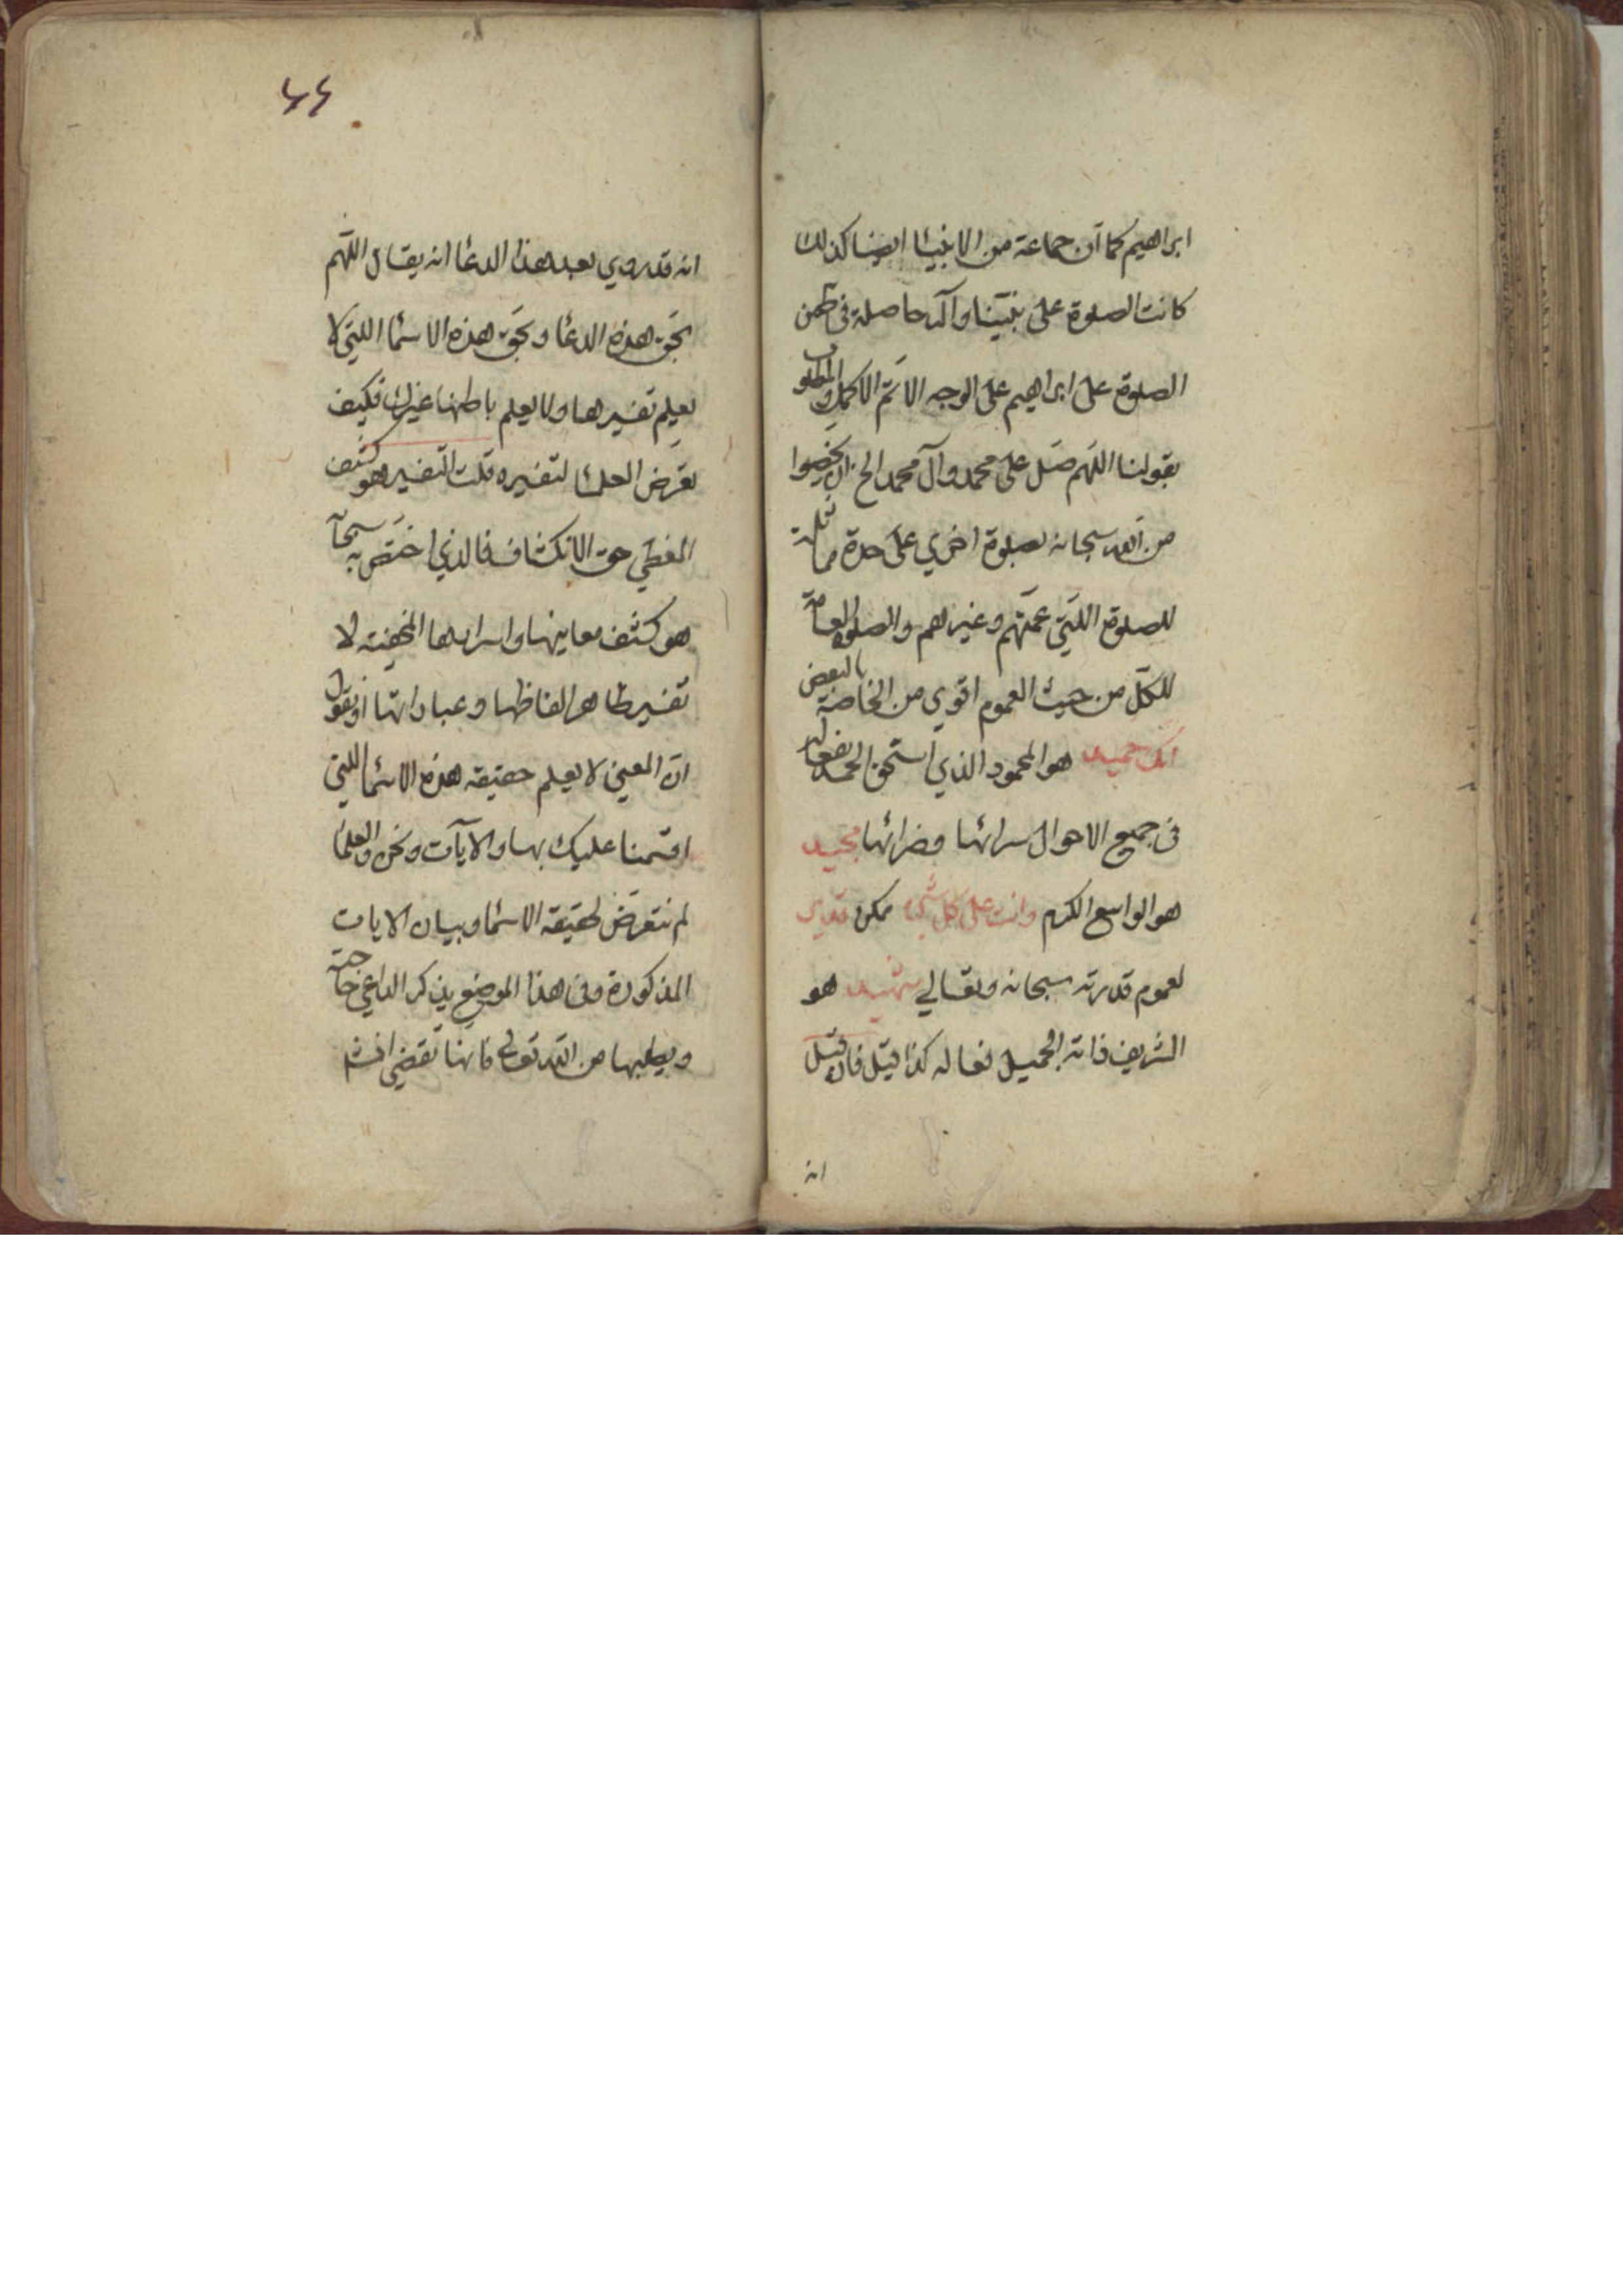 ابراهيم كما ان جماعة من الانبيا ايضا كذلك
كانت الصلوة على نبينا وآله حاصلة فى ضمن
الصلوة على ابراهيم على الوجه الاتم الاكمل والمطلوب
بقولنا اللهم صل على محمد وآل محمد الخ ان يخصوا
من الله سبحانه بصلوة اخري على حدة مماثلة
للصلوة اللتي عمتهم وغيرهم والصلوة العامة
للكل من حيث العموم اقوي من الخاصة بالبعض
انك حميد هو المحمود الذي استحق الحمد بفعاله
فى جميع الاحوال سرائها وضرائها مجيد
هو الواسع الكرم وانت على كل شيء ممكن قدير
لعموم قدرته سبحانه وتعالي شهيد هو
الشريف ذاته الجميل فعاله كذا قيل فان قيل
انه
٤٤
انه قد روي بعد هذا الدعا انه يقال اللهم
بحق هذه الدعا وبحق هذه الاسما اللتي لا
يعلم تفسيرها ولا يعلم باطنها غيرك فكيف
تعرض العلما لتفسيره قلت التفسير هو كشف
المغطي حق الانكشاف فالذي اختص به سبحانه
هو كشف معانيها واسرارها المخفية لا
تفسير ظاهر الفاظها وعباراتها او نقول
ان المعني لا يعلم حقيقة هذه الاسما اللتي
اقسمنا عليك بها والايآت ونحن والعلما
لم نتعرض لحقيقة الاسما وبيان الايات
المذكورة وفى هذا الموضع يذكر الداعي حاجته
ويطلبها من الله تعالى فانها تقضي انشا